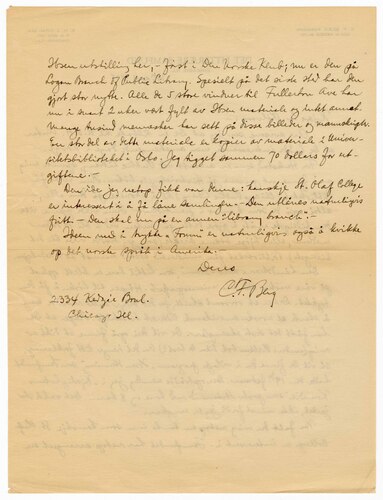 Ibsen utstilling her, - først i Den Norske Klub; nu er den på
Logan Branch of Public Library. Spesielt på det siste sted har den
gjort stor nytte. Alle de 5 store vinduer til Fullerton Ave har
nu i snart 2 uker vært fylt av Ibsen materiale og intet annet.
Mange tusind mennesker har sett på disse billeder og manuskripter.
En stor del av dette materiale er kopier av materiale i Univer-
sitetsbiblioteket i Oslo. Jeg tigget sammen 70 dollars for ut-
giftene. -
Den ide jeg netop fikk var denne: kanskje St. Olaf College
er interessert i å få låne samlingen - Den utlånes naturligvis
fritt. - Den skal nu på en annen "library branch". -
Ideen med å nytte Forum er naturligvis også å kvikke
op det norske språk i Amerika.
Deres
C. F. Berg
2334 Kedzie Boul.
Chicago Ill.